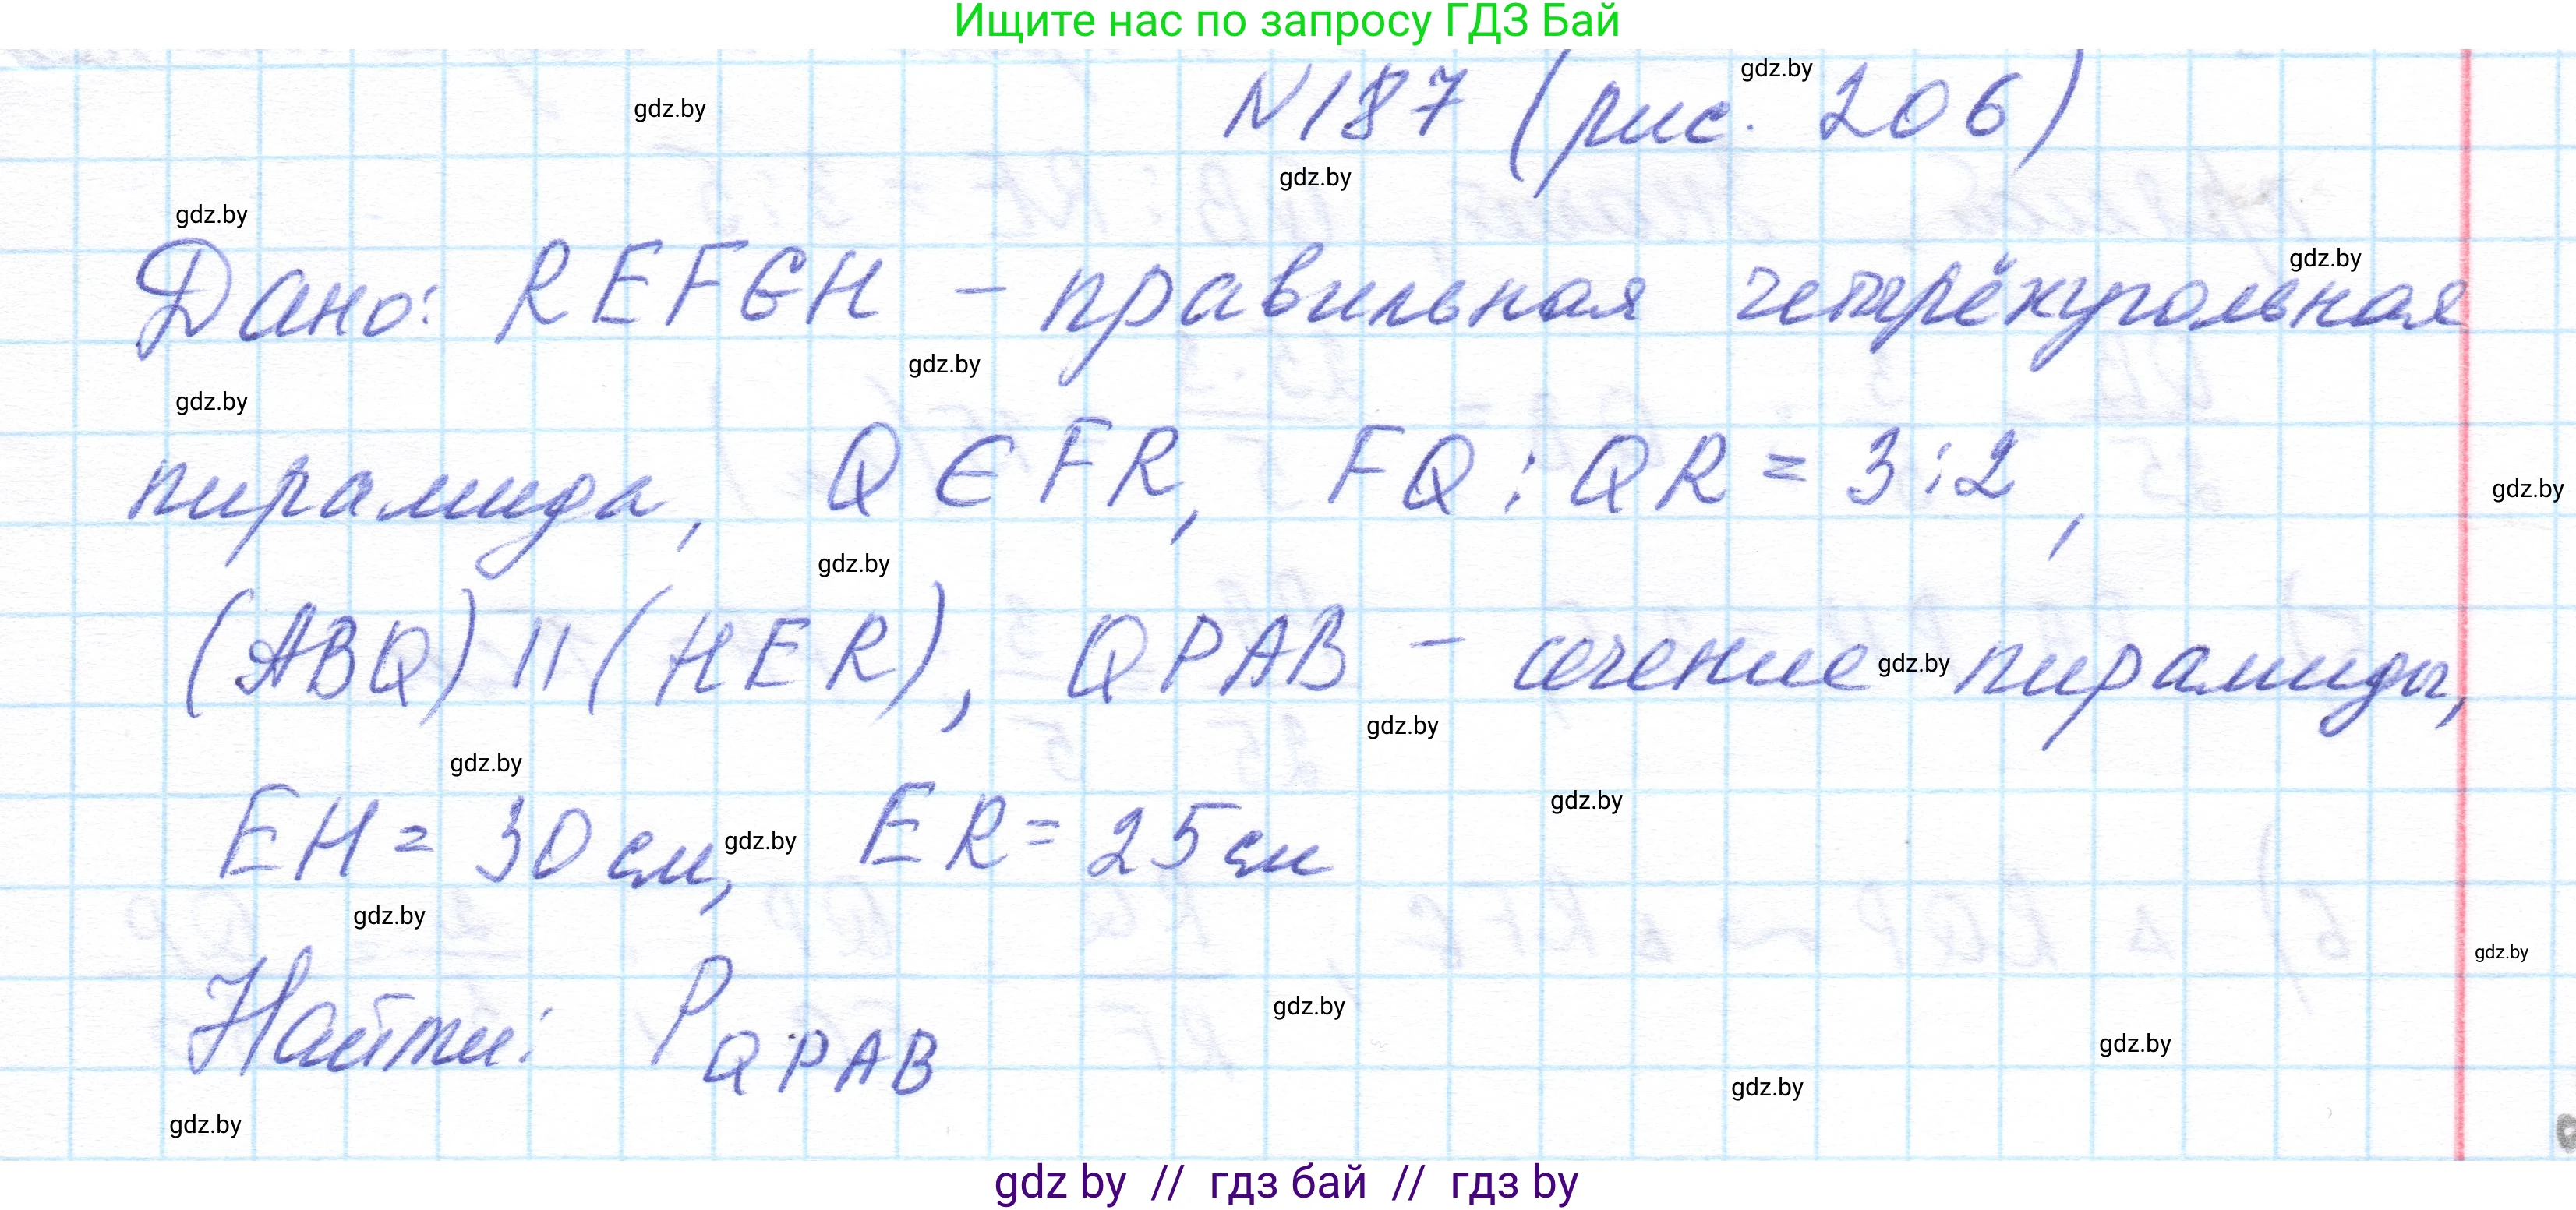 Ищите нас по запросу ГДЗ Бай
N187 (рис. 206)
gdz.by
gdz.by
gdz.by
gdz.by
Дано: REFGH - правильная четырёхугольная
gdz.by
gdz.by
gdz.by
пирамида, Q ∈ FR, FQ : QR = 3:2,
gdz.by
gdz.by
(ABQ) || (HER), QPAB - сечение пирамиды,
gdz.by
gdz.by
gdz.by
EH = 30 см, ER = 25 см
gdz.by
gdz.by
gdz.by
gdz.by
Найти: P QPAB
gdz.by
gdz.by
gdz.by
gdz.by
gdz by // гдз бай // гдз by